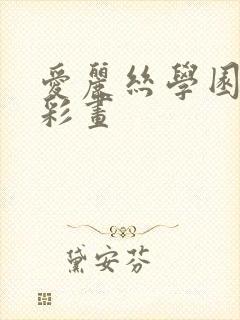 愛麗絲學園
彩畫
黛安芬